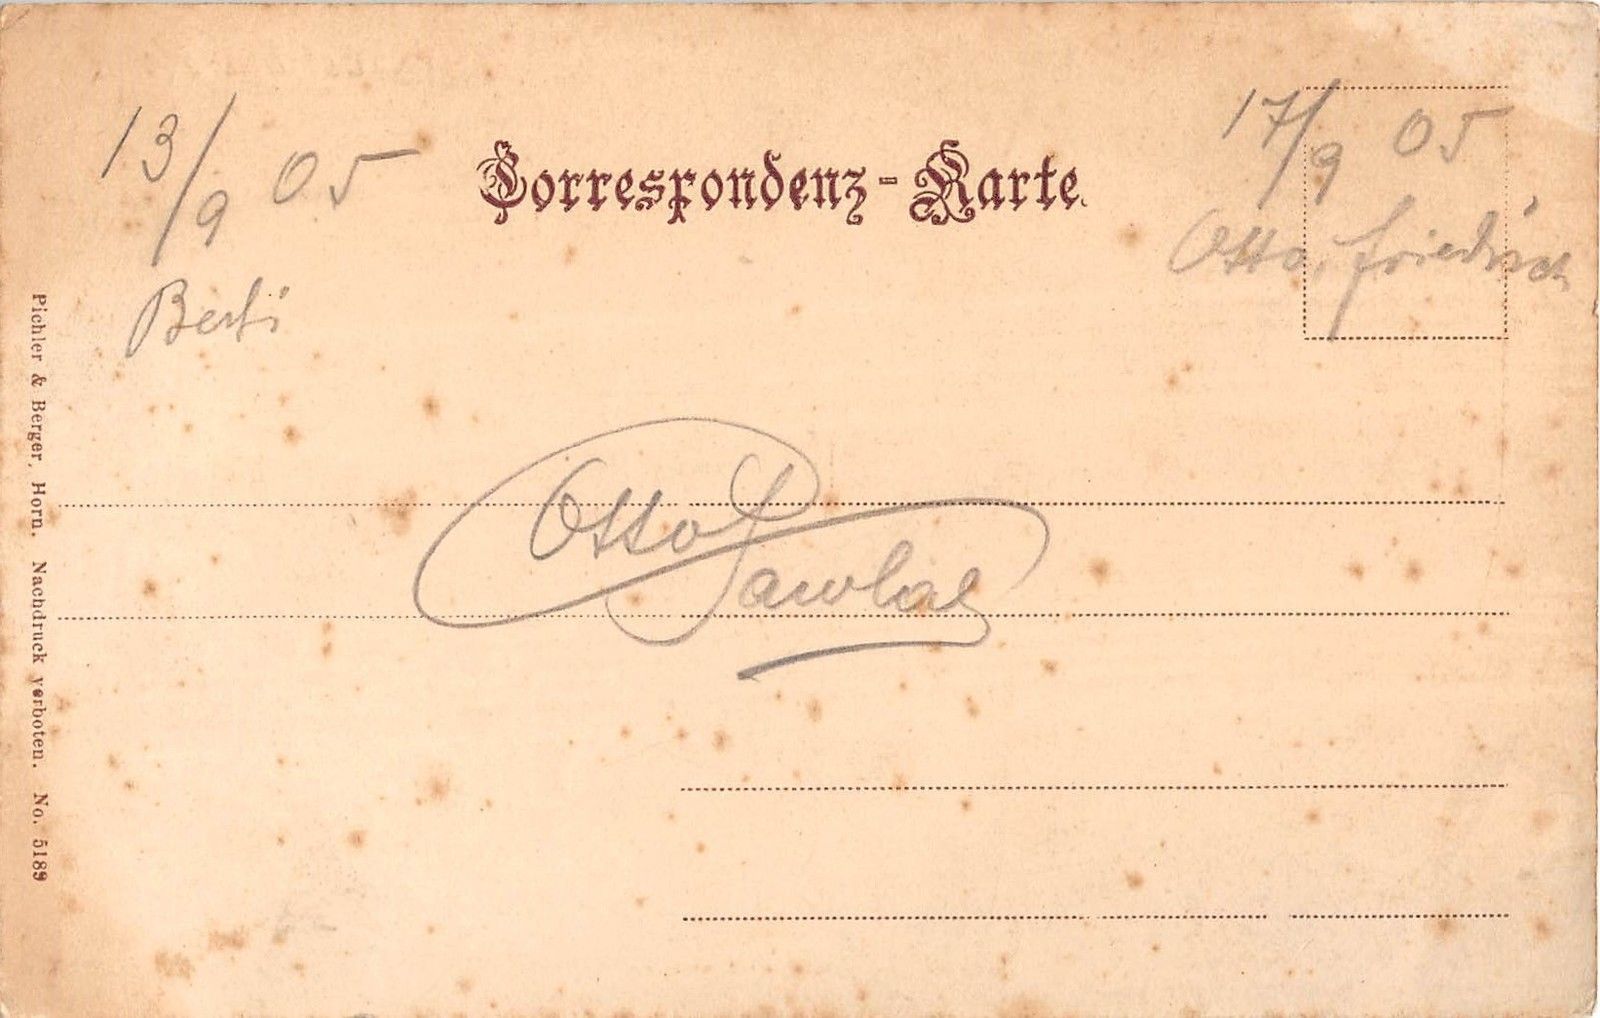 13/9 05
Berti
Correspondenz-Karte.
17/9 05
Otto, Friedrich
Otto
Pichler & Berger, Horn. Nachdruck verboten. No. 5189